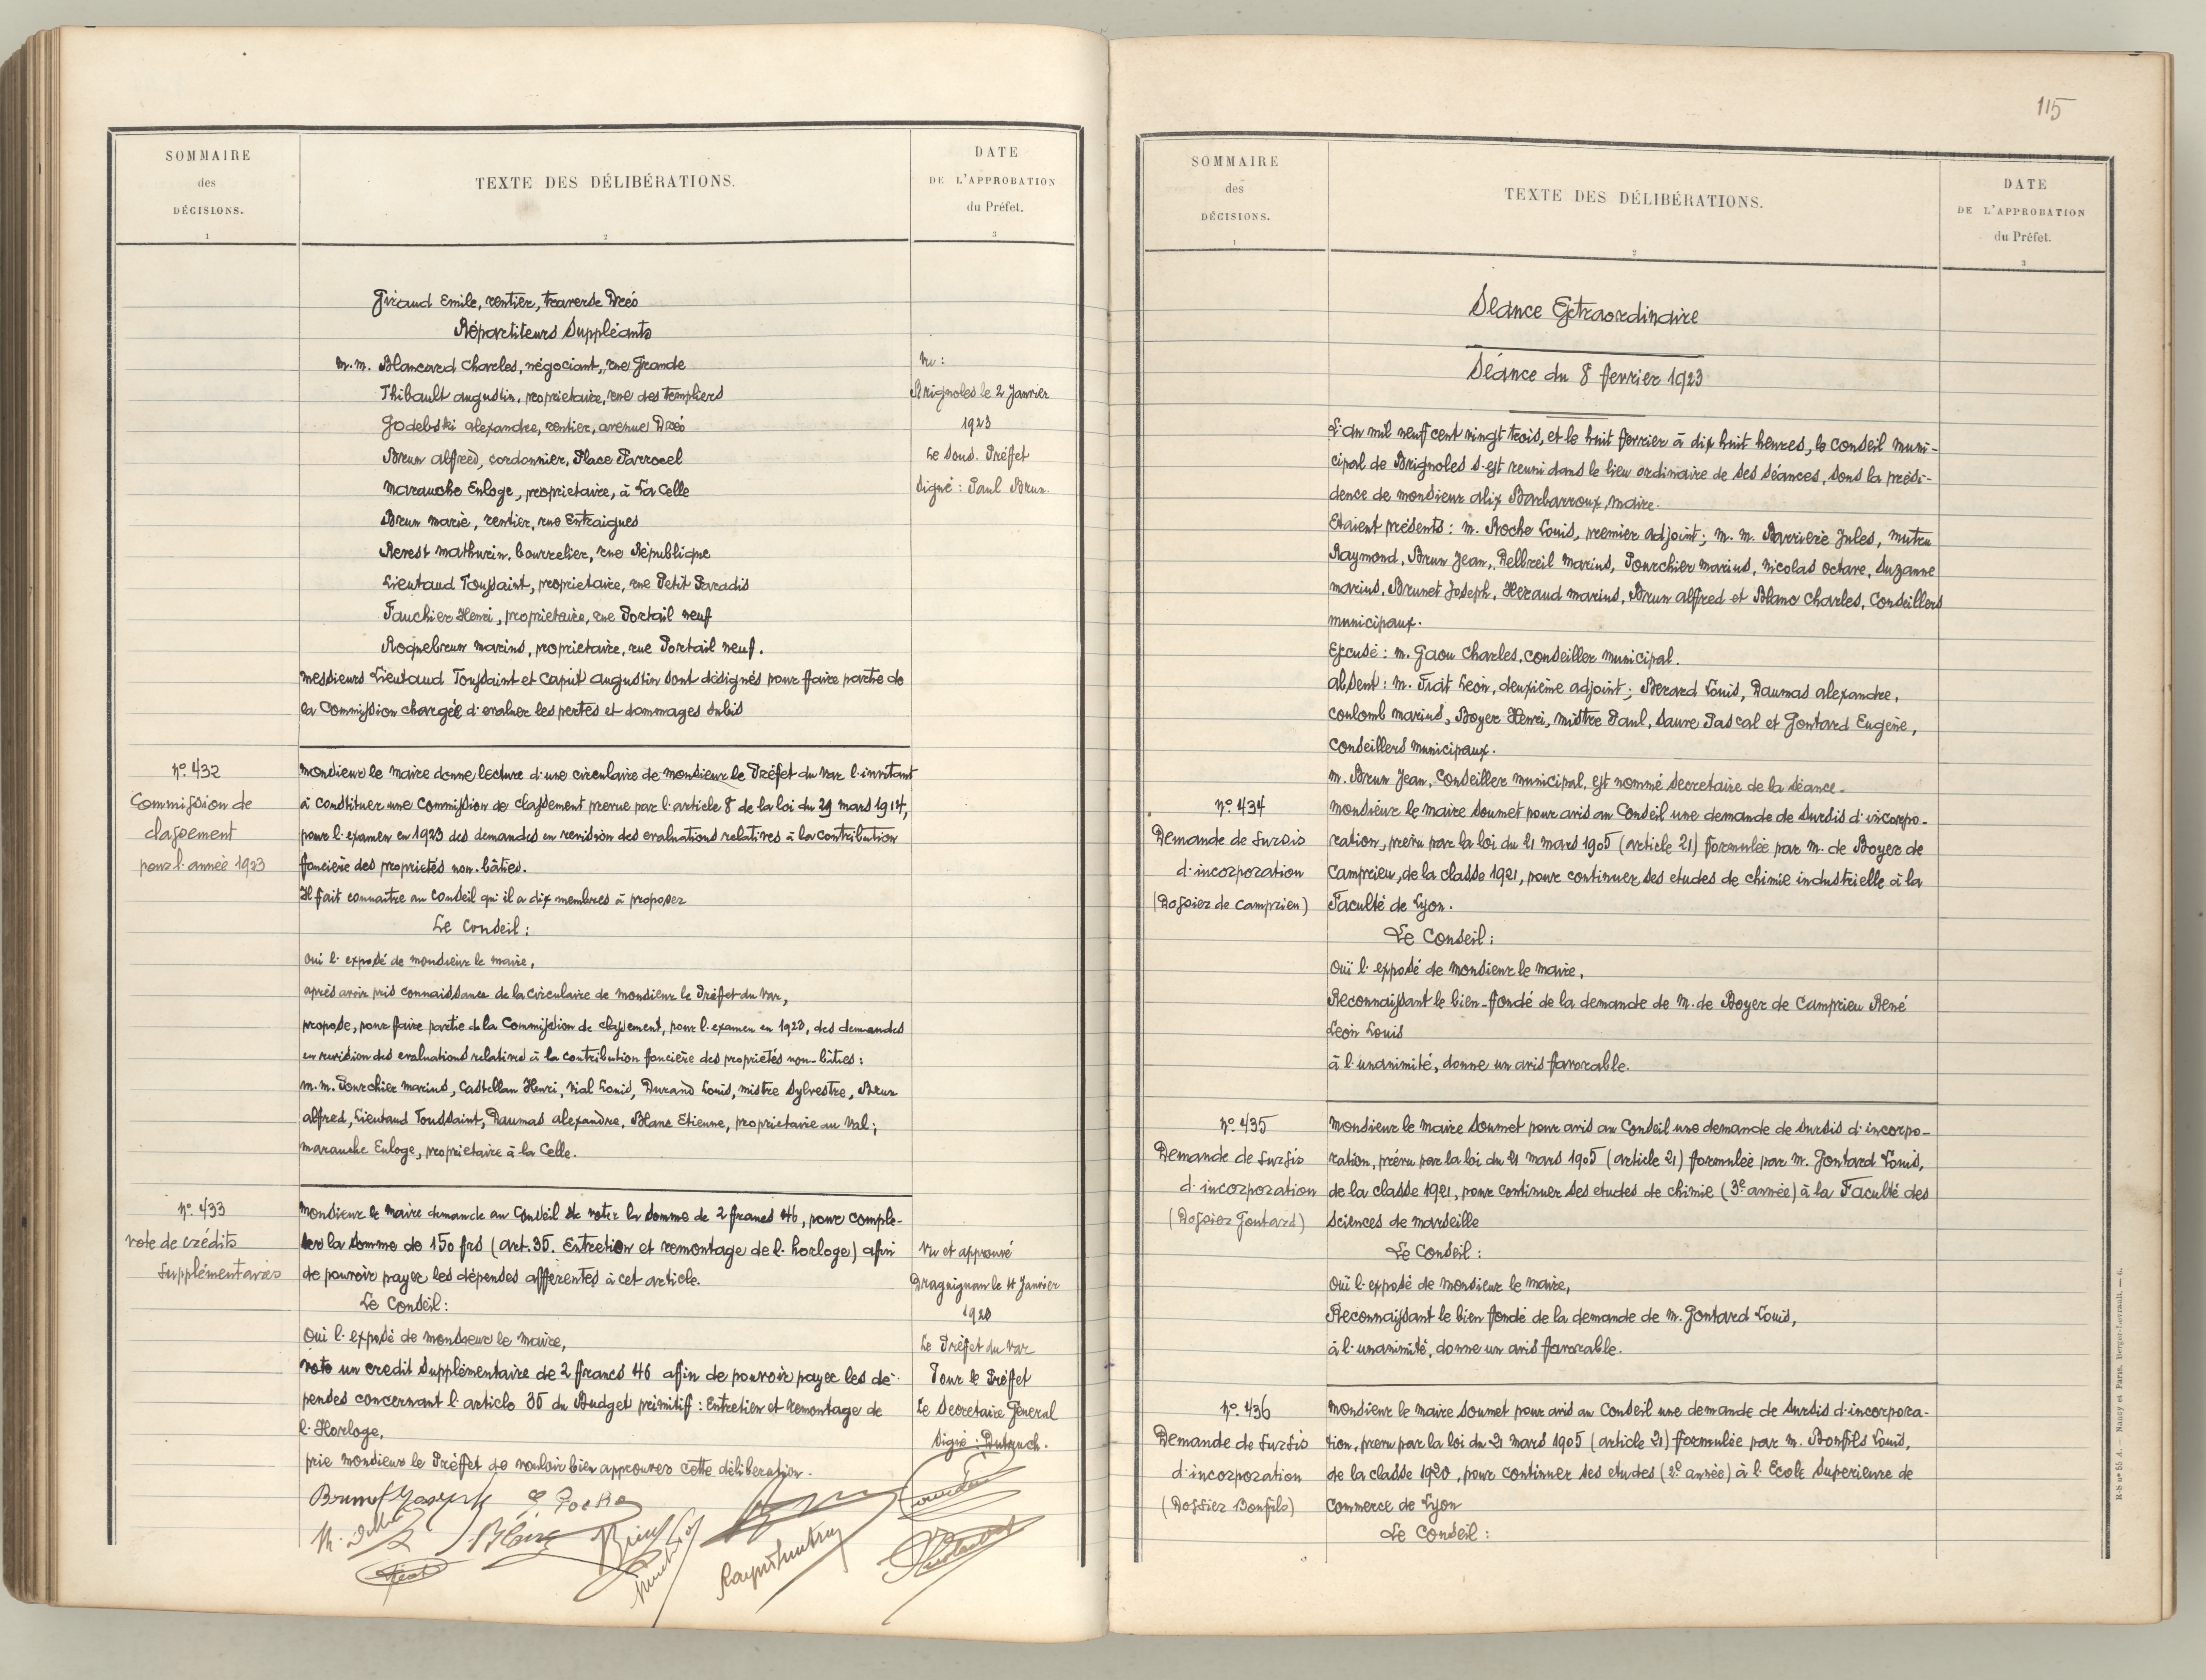 SOMMAIRE
des
DÉCISIONS.
1
TEXTE DES DÉLIBÉRATIONS.
2
DATE
DE L'APPROBATION
du Préfet.
3
Giraud Emile, rentier, traverse Dréo
Répartiteurs Suppléants
M.M. Blancard Charles, négociant, rue Grande
Thibault Augustin, propriétaire, rue des Templiers
Godebski Alexandre, rentier, avenue Dréo
Brun Alfred, cordonnier, Place Parrocel
Maranche Euloge, propriétaire, à La Celle
Brun Marie, rentier, rue Entraigues
Revest Mathurin, bourrelier, rue République
Lieutaud Toussaint, propriétaire, rue Petit Paradis
Fauchier Henri, propriétaire, rue Portail neuf
Roquebrun Marius, propriétaire, rue Portail neuf.
Messieurs Lieutaud Toussaint et Caput Augustin sont désignés pour faire partie de
la Commission chargée d'evaluer les pertes et dommages subis
Vu :
Brignoles le 2 Janvier
1923
Le Sous-Préfet
Signé : Paul Brun.
No. 432
Commission de
classement
pour l'année 1923
Monsieur le Maire donne lecture d'une circulaire de Monsieur le Préfet du Var l'invitant
à constituer une Commission de classement prevue par l'article 8 de la loi du 29 mars 1914,
pour l'examen en 1923 des demandes en revision des evaluations relatives à la contribution
foncière des proprietés non-bâties.
Il fait connaitre au Conseil qu'il a dix membres à proposer
Le Conseil :
Oui l'exposé de Monsieur le Maire,
après avoir pris connaissance de la circulaire de Monsieur le Préfet du Var,
propose, pour faire partie de la Commission de classement, pour l'examen en 1923, des demandes
en revision des evaluations relatives à la contribution foncière des proprietés non-bâties :
M.M. Pourchier Marius, Castellan Henri, Vial Louis, Durand Louis, Mistre Sylvestre, Brun
Alfred, Lieutaud Toussaint, Daumas Alexandre, Blanc Etienne, proprietaire au Val ;
Maranche Euloge, proprietaire à la Celle.
No. 433
Vote de crédits
supplémentaires
Monsieur le Maire demande au Conseil de voter la somme de 2 francs 46, pour comple-
ter la somme de 150 frs (art. 35. Entretien et remontage de l'horloge) afin
de pouvoir payer les dépenses afferentes à cet article.
Le Conseil :
Oui l'exposé de Monsieur le Maire,
vote un credit supplémentaire de 2 francs 46 afin de pouvoir payer les dé-
penses concernant l'article 35 du Budget primitif : Entretien et remontage de
l'Horloge,
prie Monsieur le Préfet de vouloir bien approuver cette déliberation.
Vu et approuvé
Draguignan le 4 Janvier
1923
Le Préfet du Var
Pour le Préfet
Le Secretaire Géneral
Signé :
Brunet Joseph
115
SOMMAIRE
des
DÉCISIONS.
1
TEXTE DES DÉLIBÉRATIONS.
2
DATE
DE L'APPROBATION
du Préfet.
3
Séance Extraordinaire
Séance du 8 fevrier 1923
L'an mil neuf cent vingt trois, et le huit fevrier à dix huit heures, le conseil muni-
cipal de Brignoles s'est reuni dans le lieu ordinaire de ses séances, sous la prési-
dence de Monsieur Alix Barbarroux, Maire.
Etaient présents : M. Roche Louis, premier adjoint ; M.M. Barrière Jules, Mutru
Raymond, Brun Jean, Delbreil Marius, Pourchier Marius, Nicolas Octave, Suzanne
Marius, Brunet Joseph, Héraud Marius, Brun Alfred et Blanc Charles, Conseillers
municipaux.
Excusé : M. Gaou Charles, conseiller municipal.
Absent : M. Trat Leon, deuxième adjoint ; Berard Louis, Daumas Alexandre,
Coulomb Marius, Boyer Henri, Mistre Paul, Sauve Pascal et Gontard Eugène,
Conseillers municipaux.
M. Brun Jean, Conseiller municipal, est nommé secretaire de la séance.
No. 434
Demande de sursis
d'incorporation
(Dossier de Camprieu)
Monsieur le Maire soumet pour avis au Conseil une demande de sursis d'incorpo-
ration, prévu par la loi du 21 mars 1905 (article 21) formulée par M. de Boyer de
Camprieu, de la classe 1921, pour continuer ses etudes de chimie industrielle à la
Faculté de Lyon.
Le Conseil :
Ouï l'exposé de Monsieur le Maire,
Reconnaissant le bien-fondé de la demande de M. de Boyer de Camprieu René
Léon Louis
à l'unanimité, donne un avis favorable.
No. 435
Demande de sursis
d'incorporation
(Dossier Gontard)
Monsieur le Maire soumet pour avis au Conseil une demande de sursis d'incorpo-
ration, prévu par la loi du 21 mars 1905 (article 21) formulée par M. Gontard Louis,
de la classe 1921, pour continuer ses etudes de chimie (3e année) à la Faculté des
Sciences de Marseille
Le Conseil :
Ouï l'exposé de Monsieur le Maire,
Reconnaissant le bien fondé de la demande de M. Gontard Louis,
à l'unanimité, donne un avis favorable.
No. 436
Demande de sursis
d'incorporation
(Dossier Bonfils)
Monsieur le Maire soumet pour avis au Conseil une demande de sursis d'incorpora-
tion, prevu par la loi du 21 mars 1905 (article 21) formulée par M. Bonfils Louis,
de la classe 1920, pour continuer ses etudes (2e année) à l'Ecole Superieure de
Commerce de Lyon
Le Conseil :
R-S no 55 A. — Nancy et Paris, Berger-Levrault. — 6.